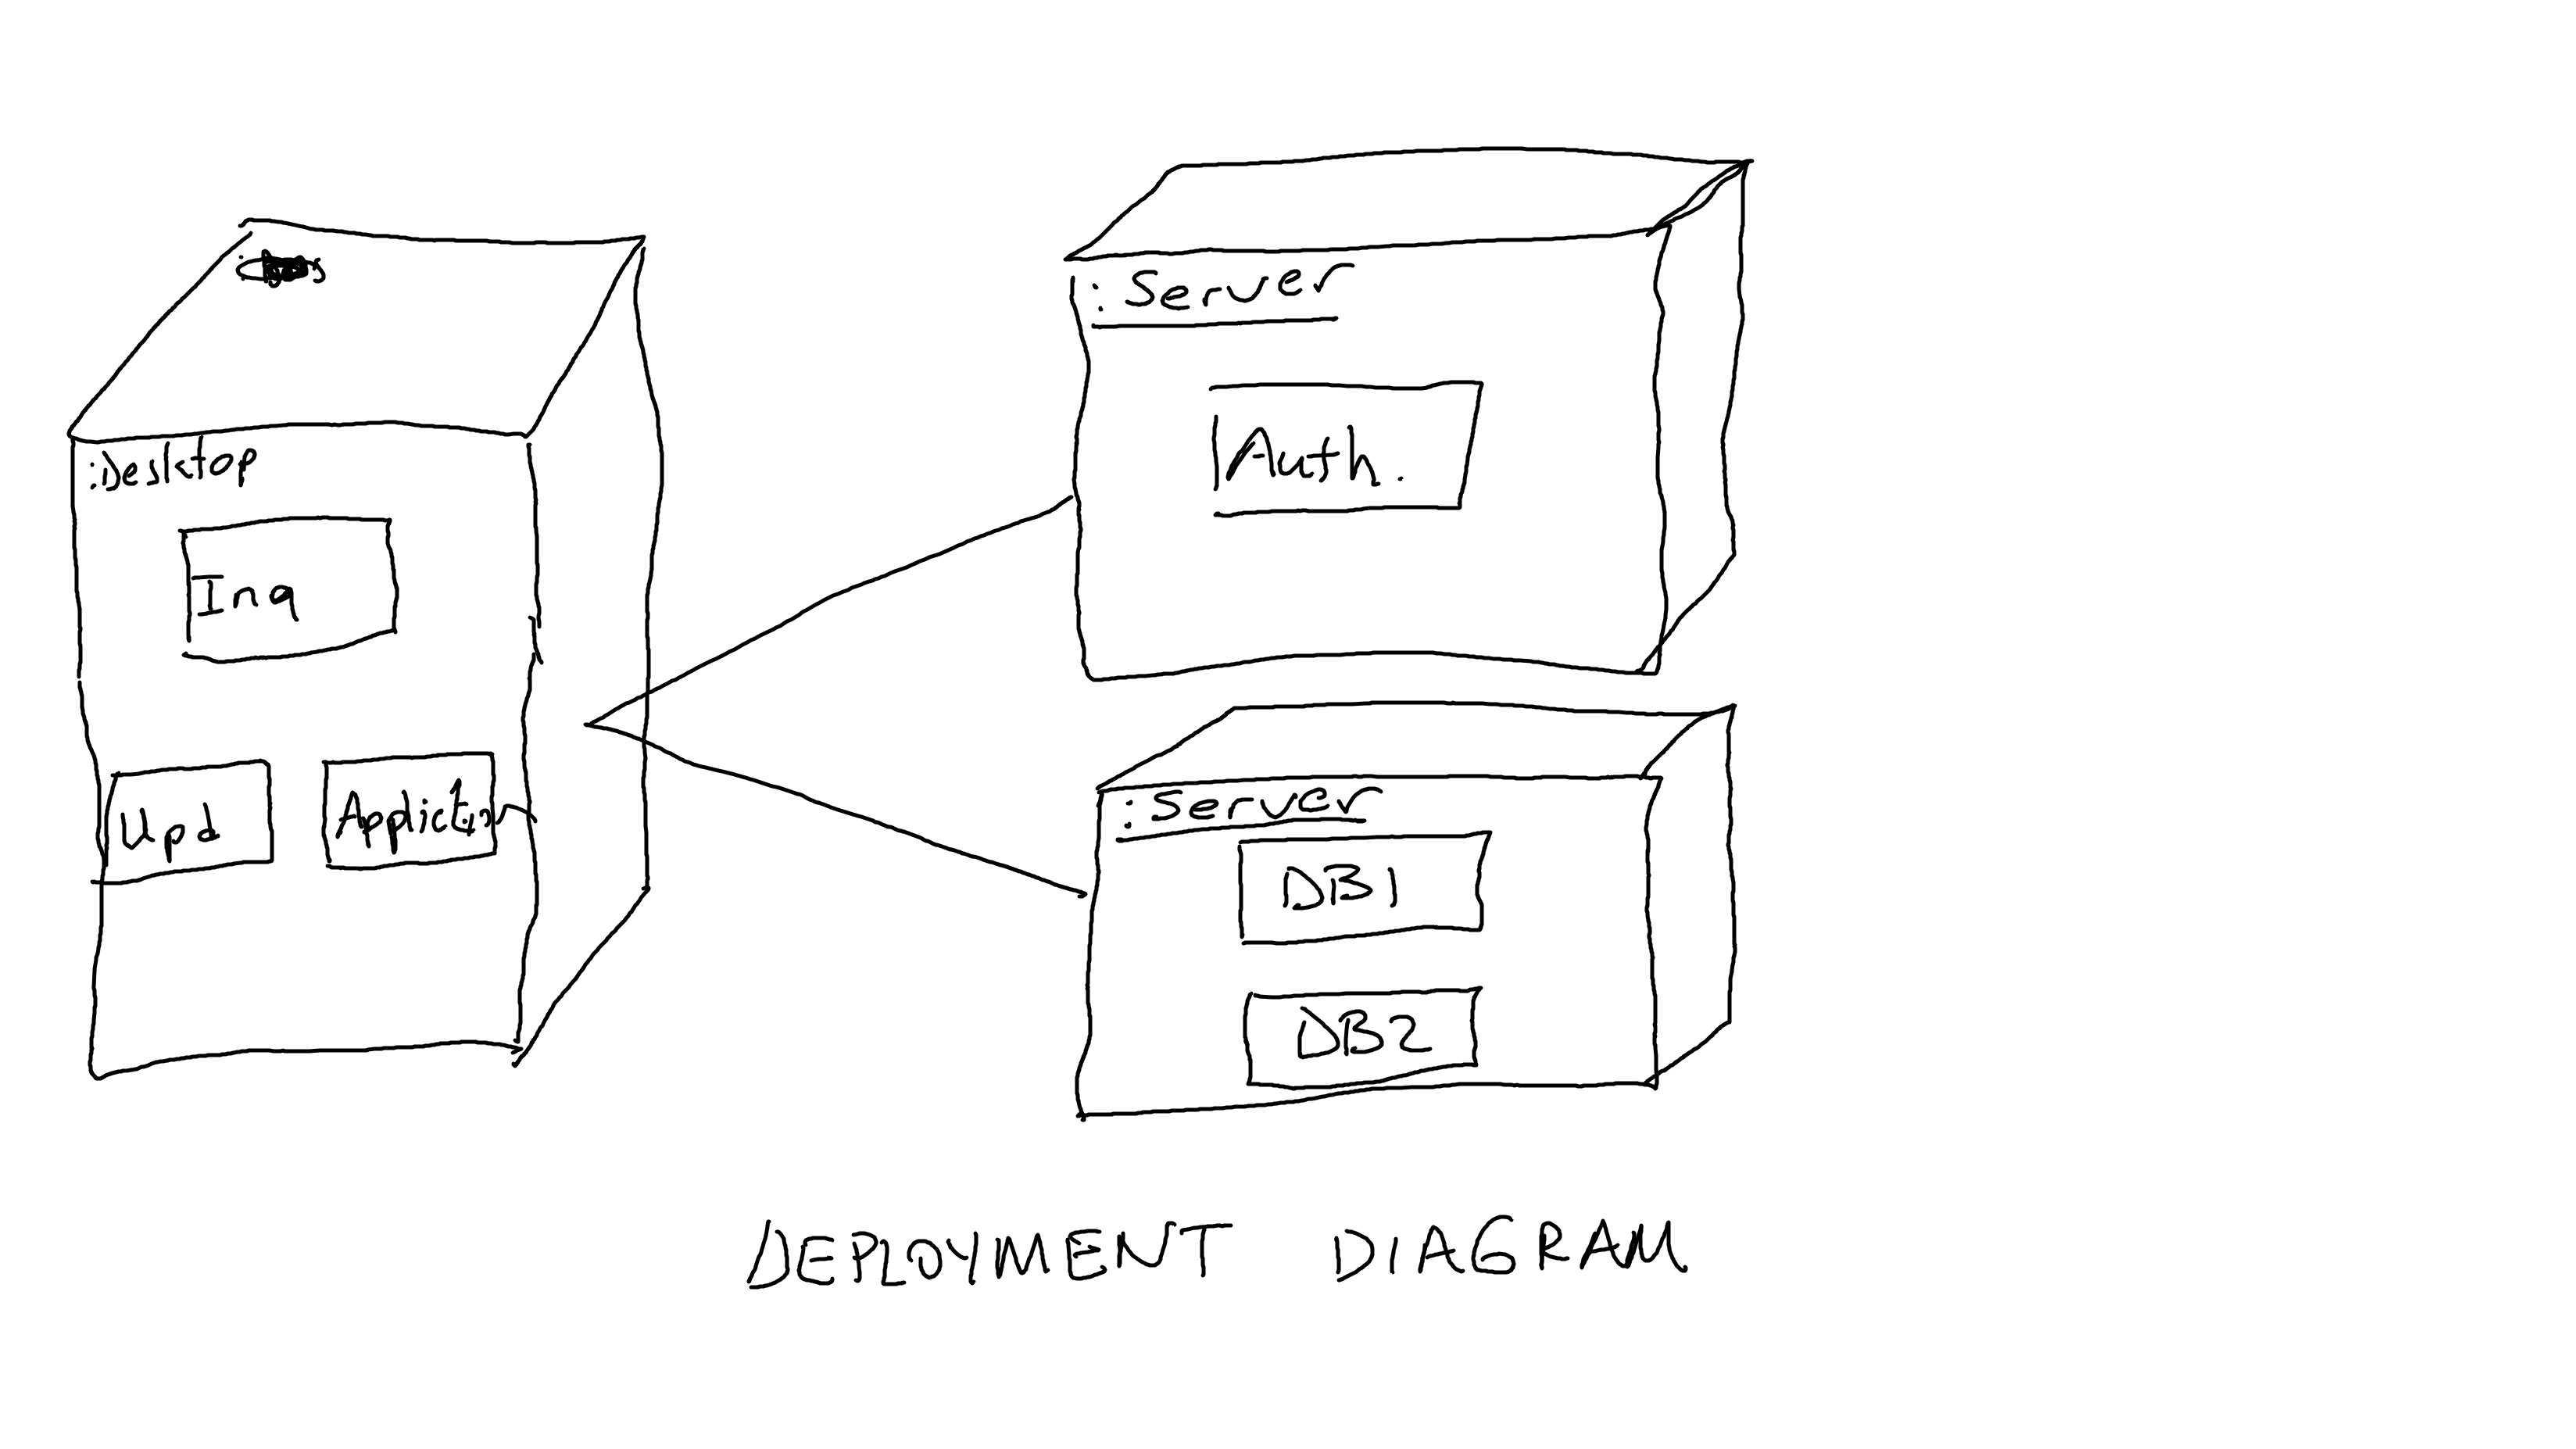 :Desktop
Inq
Upd
Applictin
:Server
Auth.
:Server
DB1
DB2
DEPLOYMENT DIAGRAM